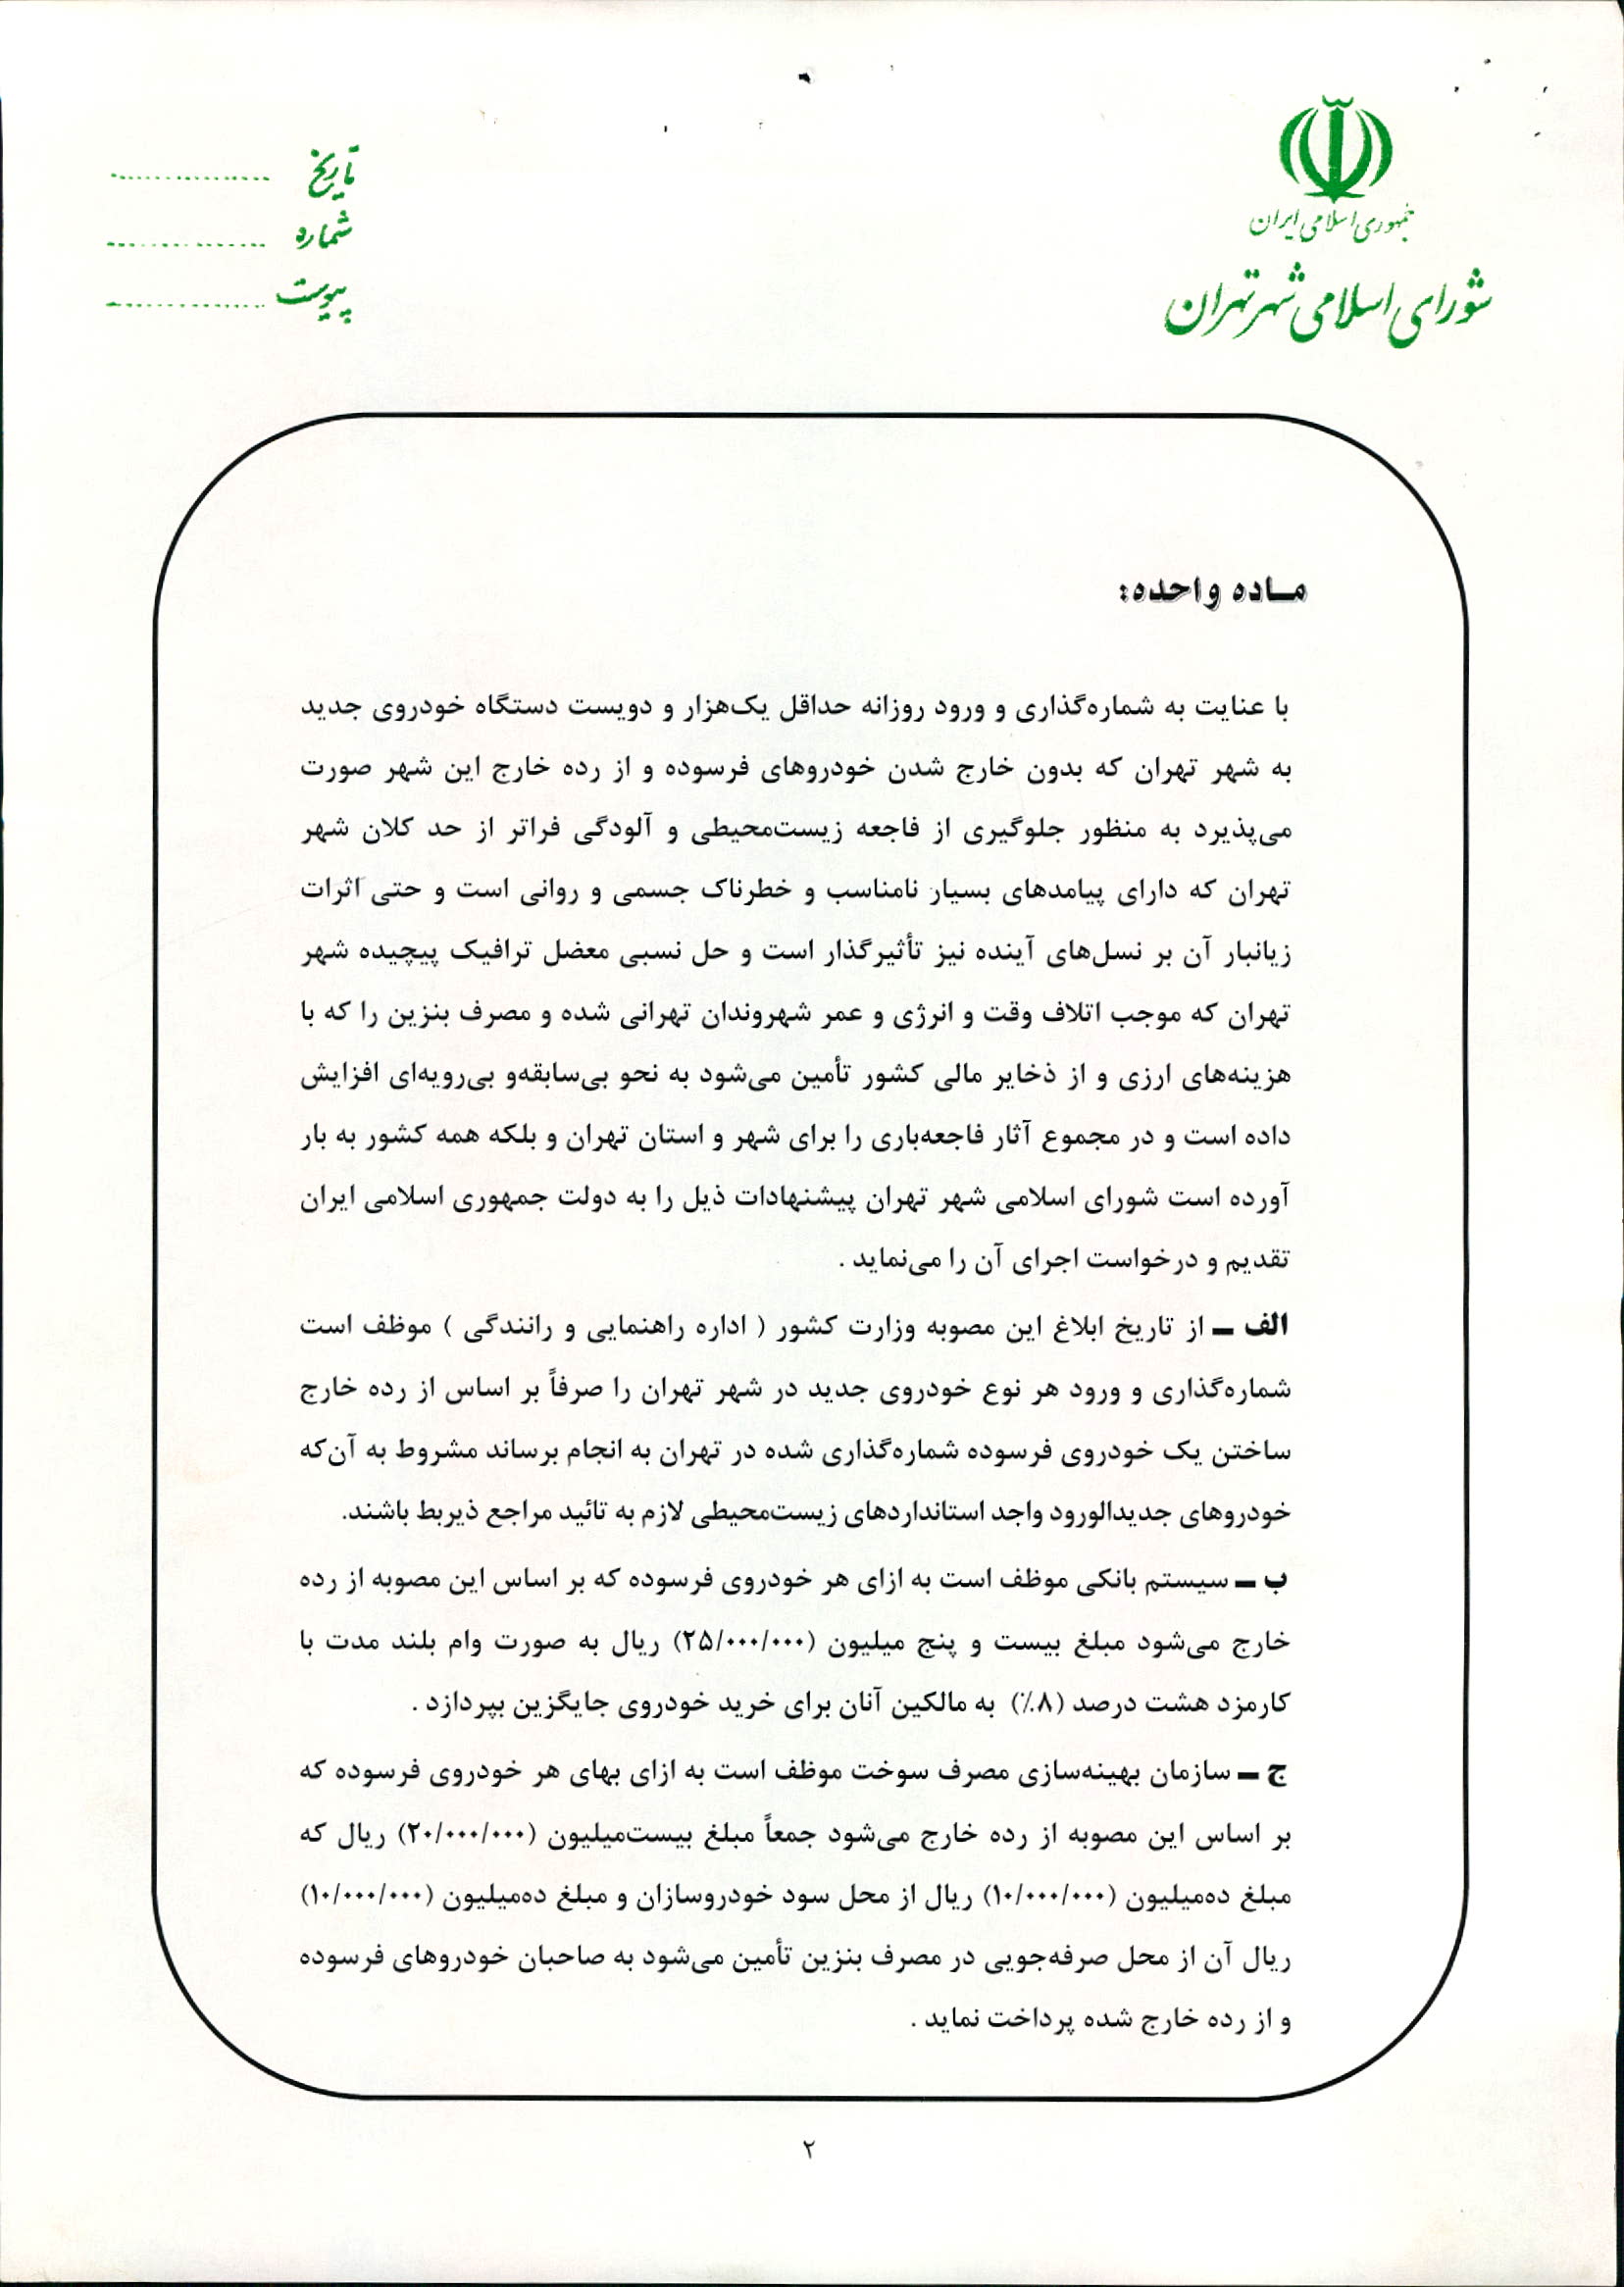 جمهوری اسلامی ایران
شورای اسلامی شهر تهران
تاریخ ................
شماره ................
پیوست ................
مــاده واحده:
با عنایت به شماره‌گذاری و ورود روزانه حداقل یک‌هزار و دویست دستگاه خودروی جدید
به شهر تهران که بدون خارج شدن خودروهای فرسوده و از رده خارج این شهر صورت
می‌پذیرد به منظور جلوگیری از فاجعه زیست‌محیطی و آلودگی فراتر از حد کلان شهر
تهران که دارای پیامدهای بسیار نامناسب و خطرناک جسمی و روانی است و حتی اثرات
زیانبار آن بر نسل‌های آینده نیز تأثیرگذار است و حل نسبی معضل ترافیک پیچیده شهر
تهران که موجب اتلاف وقت و انرژی و عمر شهروندان تهرانی شده و مصرف بنزین را که با
هزینه‌های ارزی و از ذخایر مالی کشور تأمین می‌شود به نحو بی‌سابقه‌و بی‌رویه‌ای افزایش
داده است و در مجموع آثار فاجعه‌باری را برای شهر و استان تهران و بلکه همه کشور به بار
آورده است شورای اسلامی شهر تهران پیشنهادات ذیل را به دولت جمهوری اسلامی ایران
تقدیم و درخواست اجرای آن را می‌نماید .
الف – از تاریخ ابلاغ این مصوبه وزارت کشور ( اداره راهنمایی و رانندگی ) موظف است
شماره‌گذاری و ورود هر نوع خودروی جدید در شهر تهران را صرفاً بر اساس از رده خارج
ساختن یک خودروی فرسوده شماره‌گذاری شده در تهران به انجام برساند مشروط به آن‌که
خودروهای جدیدالورود واجد استانداردهای زیست‌محیطی لازم به تائید مراجع ذیربط باشند.
ب – سیستم بانکی موظف است به ازای هر خودروی فرسوده که بر اساس این مصوبه از رده
خارج می‌شود مبلغ بیست و پنج میلیون (۲۵/۰۰۰/۰۰۰) ریال به صورت وام بلند مدت با
کارمزد هشت درصد (۸٪) به مالکین آنان برای خرید خودروی جایگزین بپردازد .
ج – سازمان بهینه‌سازی مصرف سوخت موظف است به ازای بهای هر خودروی فرسوده که
بر اساس این مصوبه از رده خارج می‌شود جمعاً مبلغ بیست‌میلیون (۲۰/۰۰۰/۰۰۰) ریال که
مبلغ ده‌میلیون (۱۰/۰۰۰/۰۰۰) ریال از محل سود خودروسازان و مبلغ ده‌میلیون (۱۰/۰۰۰/۰۰۰)
ریال آن از محل صرفه‌جویی در مصرف بنزین تأمین می‌شود به صاحبان خودروهای فرسوده
و از رده خارج شده پرداخت نماید .
۲